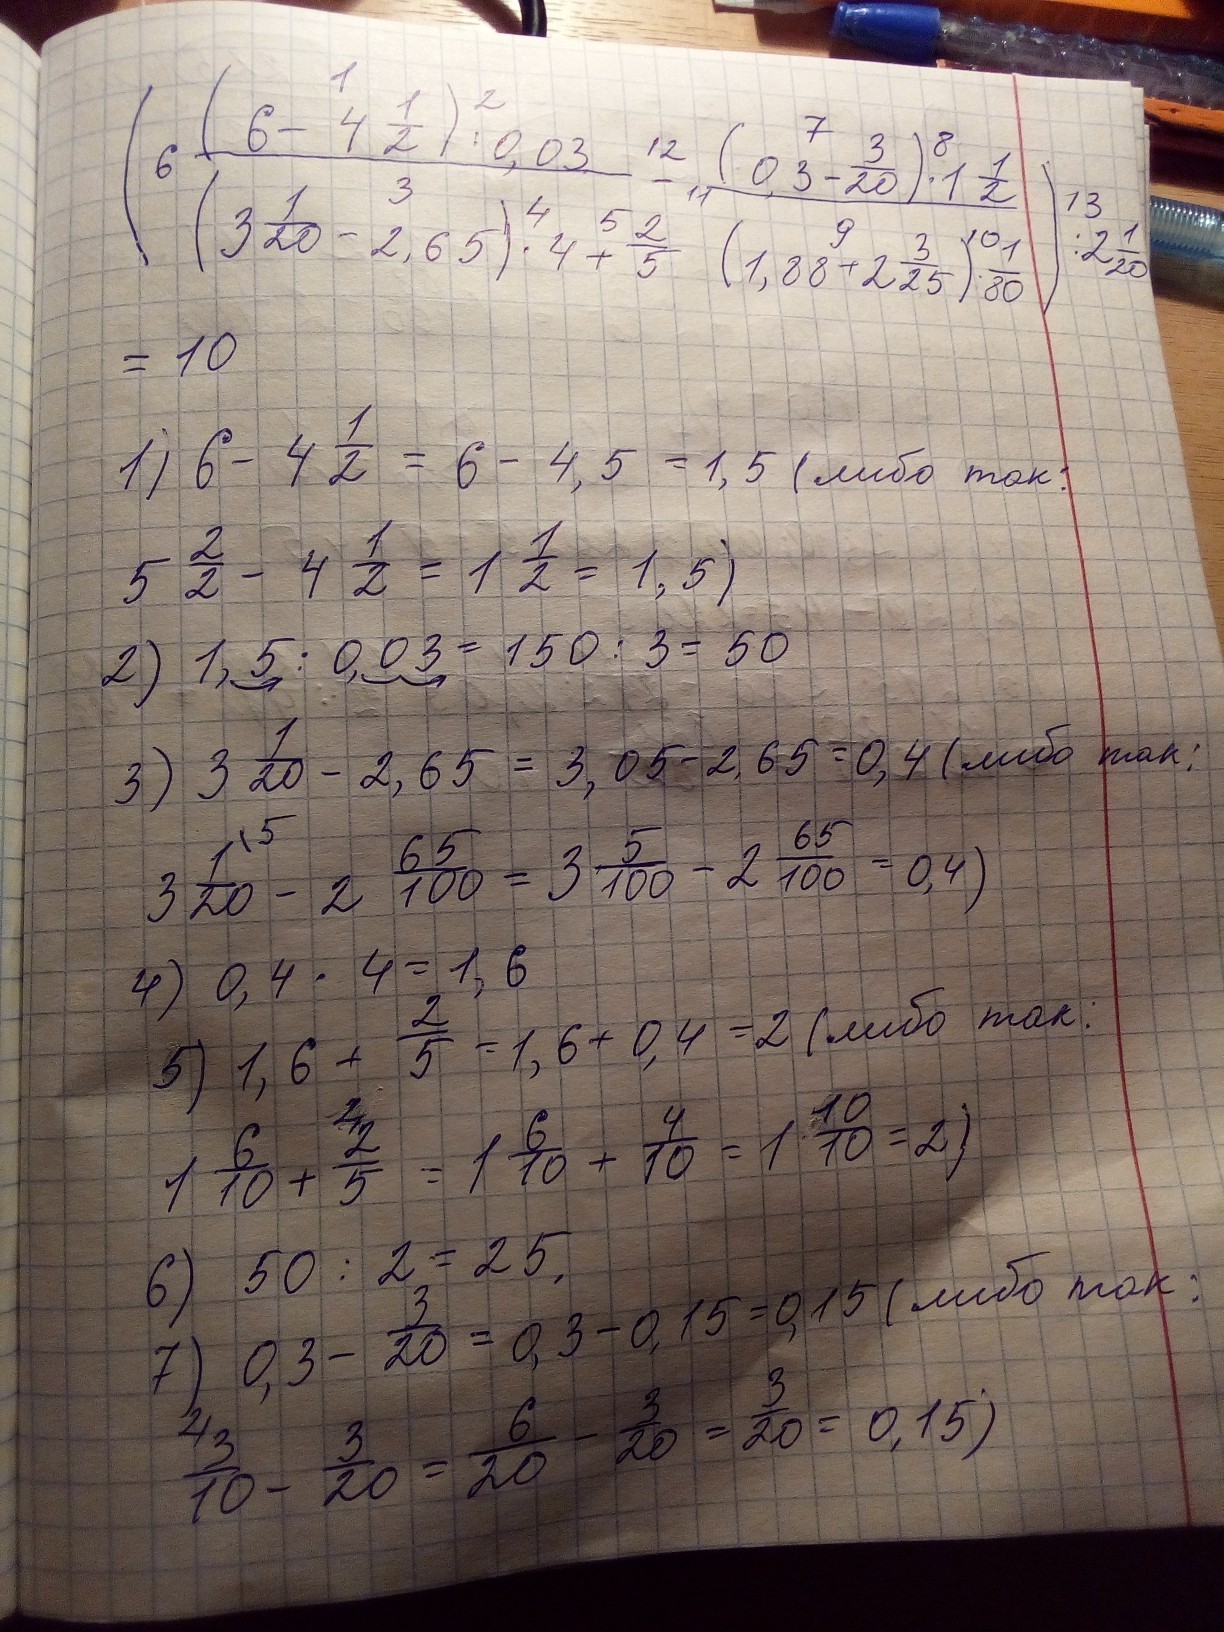 ( 6 (6 - 4 1/2) : 0,03 / (3 1/20 - 2,65) · 4 + 2/5 - (0,3 - 3/20) · 1 1/2 / (1,88 + 2 3/25) · 1/80 ) : 2 1/20
1 2 3 4 5 12 11 7 8 9 10 13
= 10
1) 6 - 4 1/2 = 6 - 4,5 = 1,5 (либо так:
5 2/2 - 4 1/2 = 1 1/2 = 1,5)
2) 1,5 : 0,03 = 150 : 3 = 50
3) 3 1/20 - 2,65 = 3,05 - 2,65 = 0,4 (либо так:
3 1/20 \5 - 2 65/100 = 3 5/100 - 2 65/100 = 0,4)
4) 0,4 · 4 = 1,6
5) 1,6 + 2/5 = 1,6 + 0,4 = 2 (либо так:
1 6/10 + 2/5 = 1 6/10 + 4/10 = 1 10/10 = 2)
6) 50 : 2 = 25.
7) 0,3 - 3/20 = 0,3 - 0,15 = 0,15 (либо так:
3/10 - 3/20 = 6/20 - 3/20 = 3/20 = 0,15)